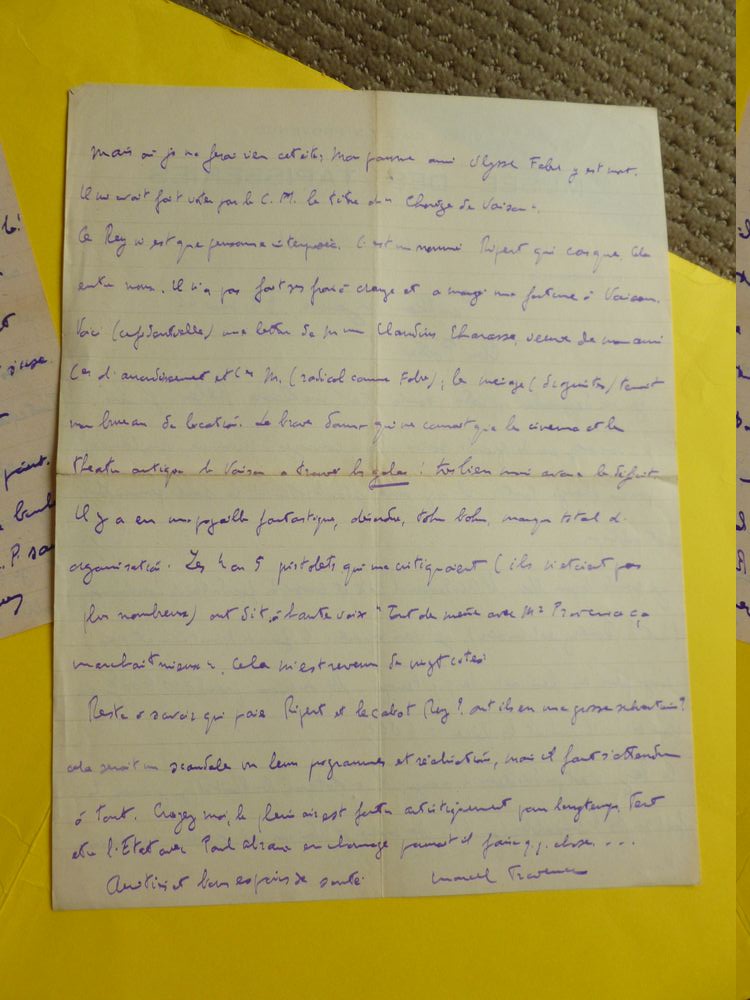 mais où je ne ferai rien cet été. Mon pauvre ami Ulysse Fabre y est mort.
Il m'avait fait voter par le C. M. le titre de "Chorège de Vaison".
Ce Rey n'est que personne interposée. C'est un nommé Ripert qui casque. Cela
entre nous. Il n'a pas fait ses frais à Orange et a mangé une fortune à Vaison.
Voici (confidentielle) une lettre de Claudius Charasse, veuve de mon ami
Cer d'arrondissement et Cer M. (radical comme Fabre), le ménage tenait
un bureau de location. La brave dame qui ne connait que le cinema et le
theatre antique de Vaison a trouvé les galas ! très bien mais avoue le deficit.
Il y a eu une pagaille fantastique, désordre, tohu bohu, manque total d'
organisation. Les 4 ou 5 pistolets qui me critiquaient (ils n'étaient pas
plus nombreux) ont dit, à haute voix "Tout de même avec Mr Provence ça
marchait mieux". Cela m'est revenu de vingt cotés.
Reste à savoir qui paie Ripert et le cabot Rey ? ont ils eu une grosse subvention ?
cela serait un scandale vu leurs programmes et réalisation, mais il faut s'attendre
à tout. Croyez moi, le plein air est foutu artistiquement pour longtemps. Peut
être l'Etat avec Paul Abram en chomage pourrait il faire qq. chose. ...
Amitiés et bons espoirs de santé Marcel Provence